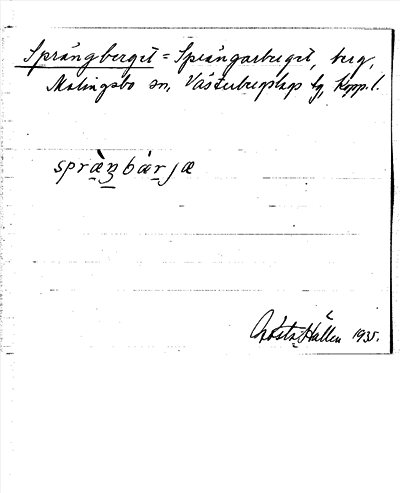 Sprängberget = Sprängarberget, berg,
Malingsbo sn, Västerbergslags tg, Kopp. l.
spræ̀ŋbærjæ
Gösta Hallén 1935.